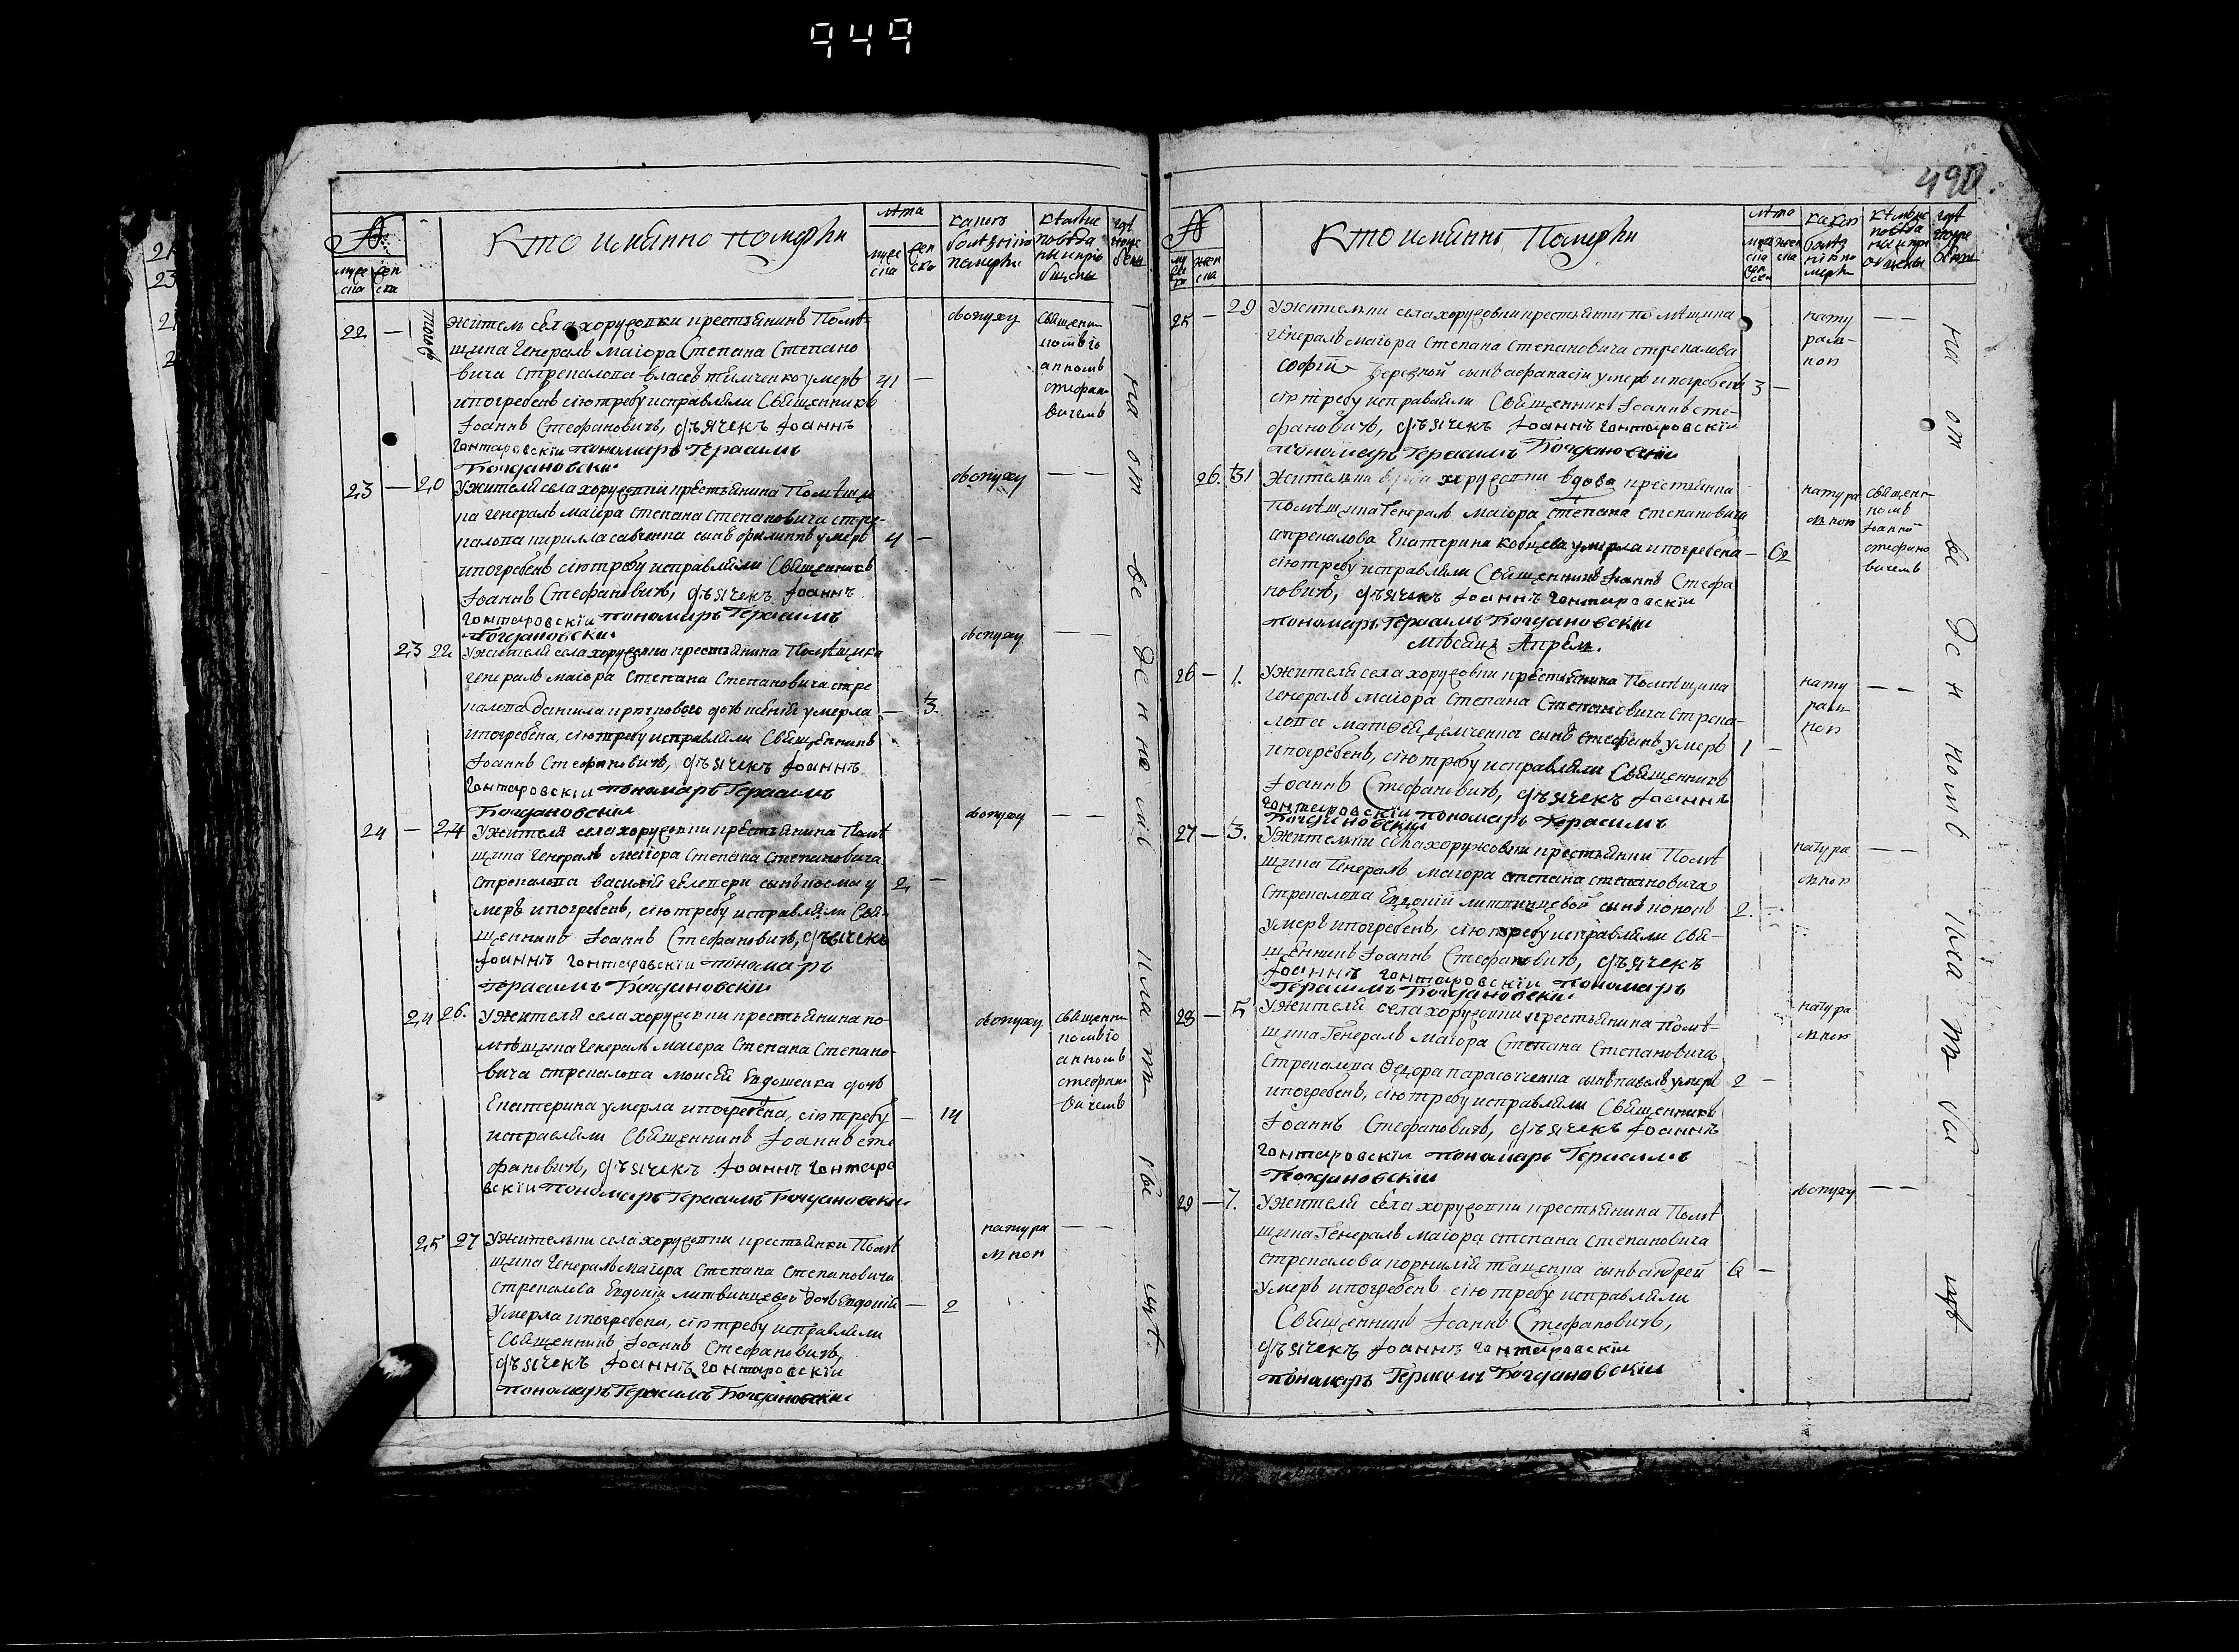 949
№
муже ска
жен ска
Кто имянно померли
лѣта
муже ска
жен ска
какою болѣзнію померли
кѣмъ исповѣданы и пріобщены
гдѣ погребены
22 — тогожъ
житель села хоружовки крестьянинъ Помѣ-
щика Генералъ маіора Степана Степано
вича Стрекалова власъ умеръ 41 —
и погребенъ сію требу исправляли Священникъ
Іоаннъ Стефановичъ, дьячекъ Іоаннъ
Гонтаровскіи пономарь Герасимъ
Богдановскіи
отопуху
священи
комъ іо
анномъ
стефано
вичемъ
23 — 20
У жителя села хоружовки крестьянина Помѣщи
ка генералъ маіора Степана Степановича стре-
калова кирилла савченка сынъ филиппъ умеръ 4 —
и погребенъ сію требу исправляли Священникъ
Іоаннъ Стефановичъ, дьячекъ Іоаннъ
Гонтаровскіи пономарь Герасимъ
Богдановскіи
отопуху — —
23 22
У жителя села хоружовки крестьянина Помѣщика
генералъ маіора Степана Степановича стре
калова данила дочь умерла — 3.
и погребена, сію требу исправляли Священникъ
Іоаннъ Стефановичъ, дьячекъ Іоаннъ
Гонтаровскіи пономарь Герасимъ
Богдановскіи
отопуху — —
24 — 24
У жителя села хоружовки крестьянина Помѣ
щика Генералъ маіора Степана Степановича
Стрекалова василій сынъ косма у 2, —
меръ и погребенъ, сію требу исправляли Свя-
щенникъ Іоаннъ Стефановичъ, дьячекъ
Іоаннъ Гонтаровскіи пономарь
Герасимъ Богдановскіи
отопуху — —
24 26.
У жителя села хоружовки крестьянина по-
мѣщика Генералъ маіора Степана Степано-
вича стрекалова моисей Евдошенка дочь
Екатерина умерла и погребена, сію требу — 14
исправляли Священникъ Іоаннъ сте
фановичъ, дьячекъ Іоаннъ Гонтаро
вскіи пономарь Герасимъ Богдановскіи
отопуху
священи
комъ іо
анномъ
стефано
вичемъ
25 27
У жительки села хоружовки крестьянки Помѣ
щика Генералъ маіора Степана Степановича
стрекалова Евдокіи литвинцевой дочь Евдокія — 2
Умерла и погребена, сію требу исправляли
Священникъ Іоаннъ Стефановичъ,
дьячекъ Іоаннъ Гонтаровскіи
пономарь Герасимъ Богдановскіи
натура
лною — —
490.
№
Кто имянно Померли
лѣта
какою болѣзнію померли
кѣмъ исповѣданы и пріобщены
гдѣ погребены
25 — 29
У жительки села хоружовки крестьянки помѣщика
генералъ маіора Степана Степановича стрекалова
Софіи сынъ афанасіи умеръ и погребенъ 3 —
сію требу исправляли Священникъ Іоаннъ сте-
фановичъ, дьячекъ Іоаннъ Гонтаровскіи
пономарь Герасимъ Богдановскіи
нату
рал-
ною — —
26. 31
Жителька хоружовки вдова крестьянка
помѣщика Генералъ маіора Степана Степановича
стрекалова Екатерина кобцева умерла и погребена — 62
сію требу исправляли Священникъ Іоаннъ Стефа
новичъ, дьячекъ Іоаннъ Гонтаровскіи
пономарь Герасимъ Богдановскіи
натура
лною
священи
комъ
Іоанно
стефано
вичемъ
мѣсяцъ Апрель.
26 — 1.
У жителя села хоружовки крестьянина Помѣщика
Генералъ маіора Степана Степановича стрека-
лова матѳей демченка сынъ стефанъ умеръ 1 —
и погребенъ, сію требу исправляли Священникъ
Іоаннъ Стефановичъ, дьячекъ Іоаннъ
Гонтаровскіи пономарь Герасимъ
Богдановскіи
нату
рал
ною — —
27 — 3.
У жительки села хоружовки крестьянки Помѣ
щика Генералъ маіора степана степановича
Стрекалова Евдокіи литвинцевой сынъ кононъ 2. —
умеръ и погребенъ, сію требу исправляли Свя-
щенникъ Іоаннъ Стефановичъ, дьячекъ
Іоаннъ Гонтаровскіи пономарь
Герасимъ Богдановскіи
натура
лною — —
28 — 5
У жителя села хоружовки крестьянина Помѣ-
щика Генералъ маіора Степана Степановича
Стрекалова Ѳедора сынъ павелъ умеръ 2 —
и погребенъ, сію требу исправляли Священникъ
Іоаннъ Стефановичъ, дьячекъ Іоаннъ
Гонтаровскіи пономарь Герасимъ
Богдановскіи
натура
лною
29 — 7.
У жителя села хоружовки крестьянина Помѣ
щика Генералъ маіора степана степановича
стрекалова корнилій сынъ андрей 6 —
Умеръ и погребенъ сію требу исправляли
Священникъ Іоаннъ Стефановичъ,
дьячекъ Іоаннъ Гонтаровскіи
пономарь Герасимъ Богдановскіи
отопуху — —